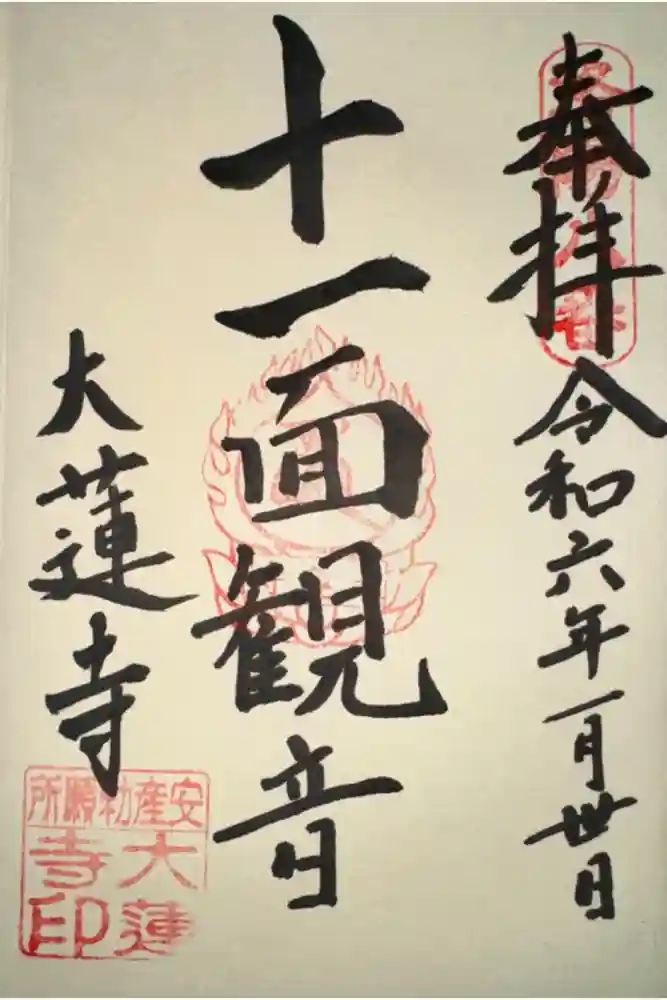 奉拝
令和六年一月丗日
十一面観音
大蓮寺
安産勅願所
大蓮
寺印